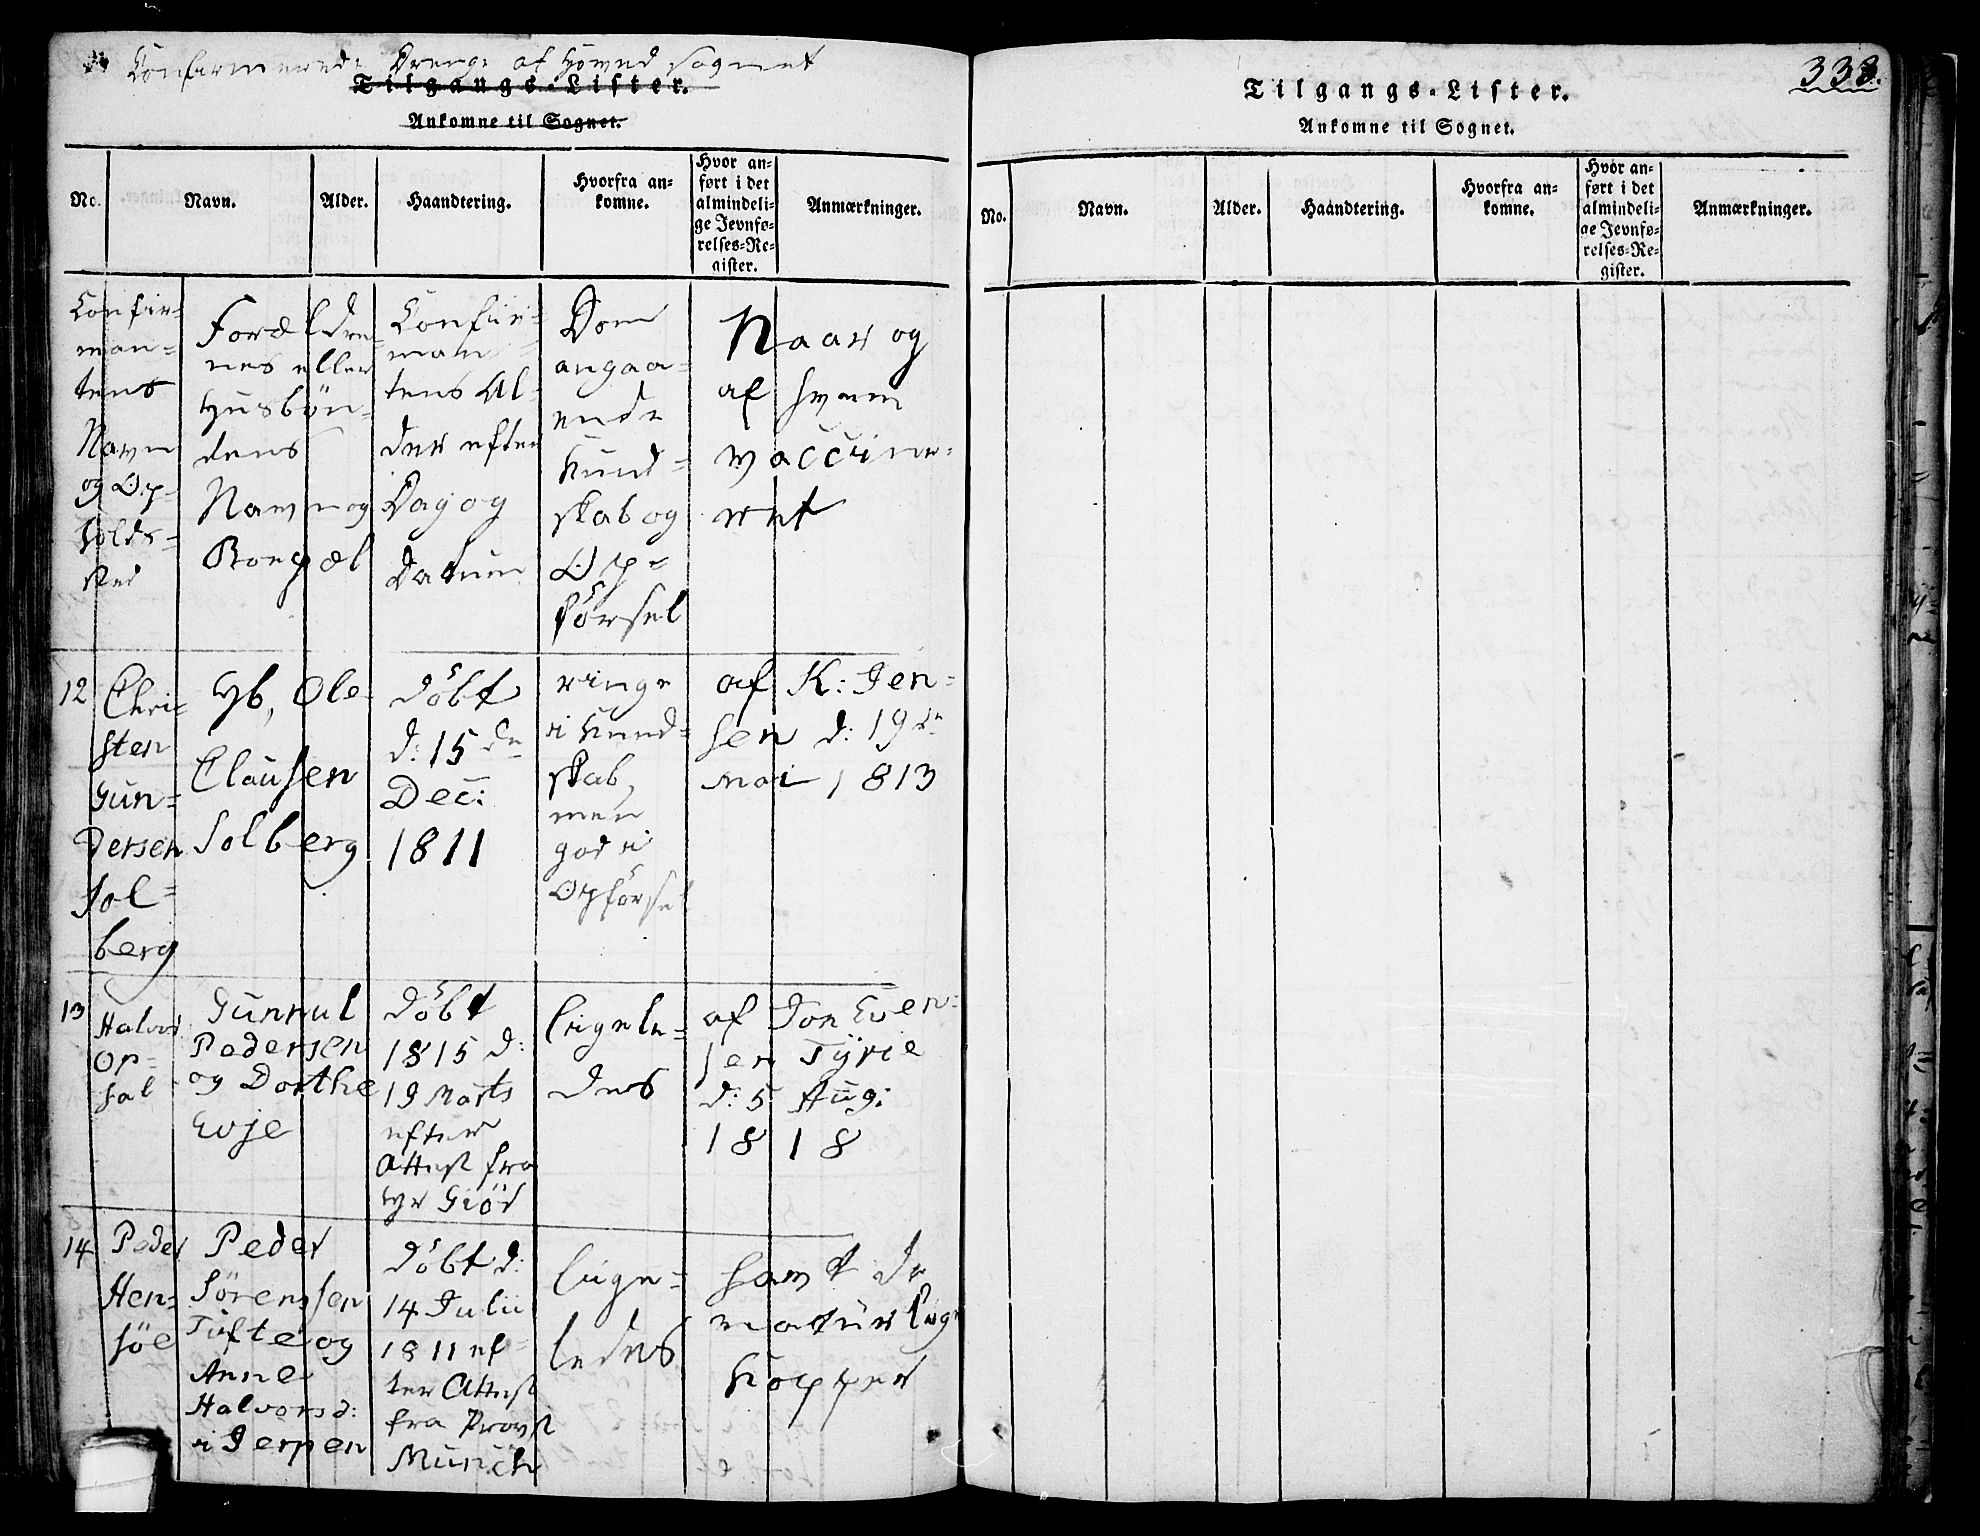 Confirmerede Drenge af Hovedsognet
Tilgangs-Lister.
Ankomne til Sognet.
No.
Navn.
Alder.
Haandtering.
Hvorfra an-
komne.
Hvor an-
ført i det
almindeli-
ge Jevnfø-
relses-Re-
gister.
Anmærkninger.
Confir-
man-
tens
Navn
og Op-
holds-
sted
Forældre-
nes eller
Husbön-
dens
Navn og
Bopæl
Confir-
man-
tens Al-
der efter
Dag og
Datum
Dom
angaa-
ende
Kund-
skab og
Op-
försel
Naar og
af hvem
vaccine-
ret
12
Chri-
sten
Gun-
dersen
Sol-
berg
Hb, Ole
Clausen
Solberg
döbt
d: 15de
Dec:
1811
ringe
i Kund-
skab,
men
god i
Opförsel
af K: Jen-
sen d: 19de
Mai 1813
13
Halvor
Op-
sal
Gunnul
Pedersen
og Dorthe
Evje
döbt
1815 d:
19 Marts
efter
Attest fra
Hr Giöd
ligele-
des
af Jon Even-
sen Tyrie
d: 5 Aug:
1818
14
Peder
Hen-
söe
Peder
Sörenssen
Tufte og
Anne
Halvorsd:
i Jerpen
döbt d:
14 Julii
1811 ef-
ter Attest
fra Provst
Münch
lige-
ledes
havt de
naturlige
Kopper
333.
Tilgangs-Lister.
Ankomne til Sognet.
No.
Navn.
Alder.
Haandtering.
Hvorfra an-
komne.
Hvor an-
ført i det
almindeli-
ge Jevnfø-
relses-Re-
gister.
Anmærkninger.